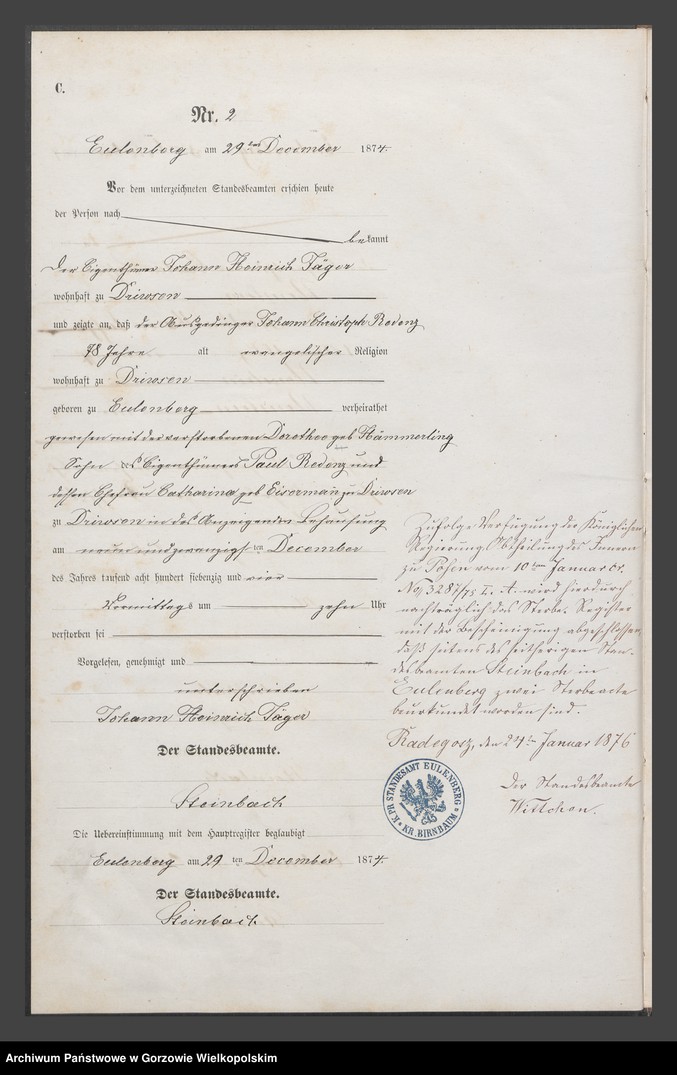 C.
Nr. 2
Eulenberg am 29ten December 1874.
Vor dem unterzeichneten Standesbeamten erschien heute
der Person nach
bekannt
der Eigenthümer Johann Heinrich Jäger
wohnhaft zu Driwsen
und zeigte an, daß der Ausgedinger Johann Christoph Redenz
78 Jahre alt evangelischer Religion
wohnhaft zu Driwsen
geboren zu Eulenberg verheirathet
gewesen mit der verstorbenen Dorothea geb Hämmerling
Sohn des Eigenthümers Paul Redenz und
dessen Ehefrau Catharina geb Eiserman zu Driwsen
zu Driwsen in des Anzeigenden Behausung
am neun und zwanzigsten December
des Jahres tausend acht hundert siebenzig und vier
Vormittags um zehn Uhr
verstorben sei
Vorgelesen, genehmigt und
unterschrieben
Johann Heinrich Jäger
Der Standesbeamte.
Steinbach
Die Uebereinstimmung mit dem Hauptregister beglaubigt
Eulenberg am 29 ten December 1874.
Der Standesbeamte.
Steinbach
Zufolge Verfügung der Königlichen
Regierung Abtheilung des Innern
zu Posen vom 10ten Januar cr.
No. 3287/75 I. A. wird hierdurch
nachträglich das Sterbe-Register
mit der Bescheinigung abgeschlossen,
daß seitens des seitherigen Stan-
desbeamten Steinbach in
Eulenberg zwei Sterbeacte
beurkundet worden sind.
Radegosz, den 24ten Januar 1876
Der Standesbeamte
Wittchen.
K. PR. STANDESAMT EULENBERG * KR. BIRNBAUM *
Archiwum Państwowe w Gorzowie Wielkopolskim